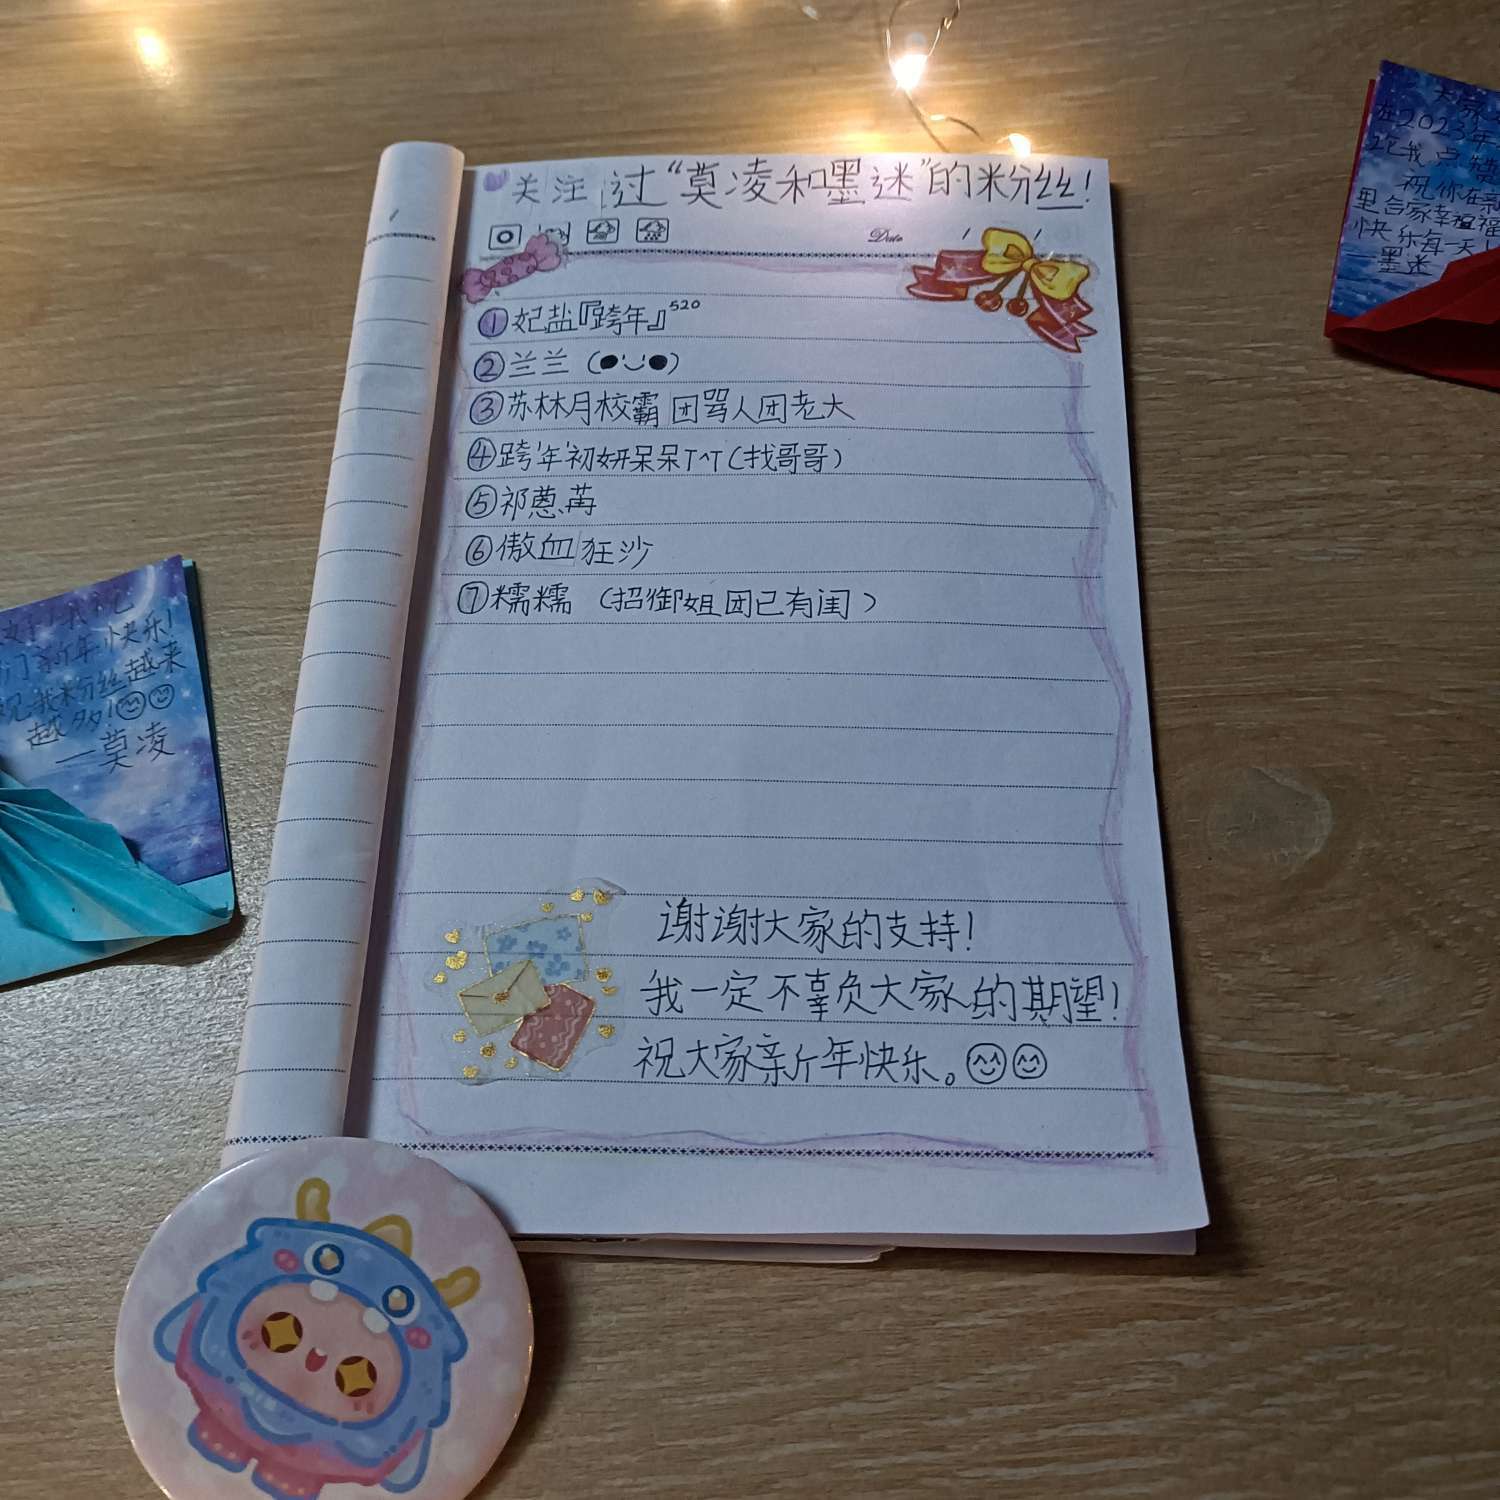 关注过“莫凌和墨迷”的粉丝!
Date / /
①妃盐『跨年』520
②兰兰 (●'◡'●)
③苏林月校霸 团骂人团老大
④跨年初妍呆呆T^T(找哥哥)
⑤祁蒽苒
⑥傲血狂沙
⑦糯糯 (招御姐团已有闺)
谢谢大家的支持!
我一定不辜负大家的期望!
祝大家新年快乐。
们新年快乐!
祝我粉丝越来
越多!
—莫凌
大家
在2023年
给我点赞
祝你在新
里合家幸福
快乐每一天!
—墨迷